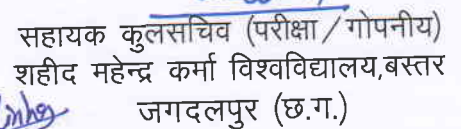 सहायक कुलसचिव (परीक्षा / गोपनीय)
शहीद महेन्द्र कर्मा विश्वविद्यालय,बस्तर
जगदलपुर (छ.ग.)